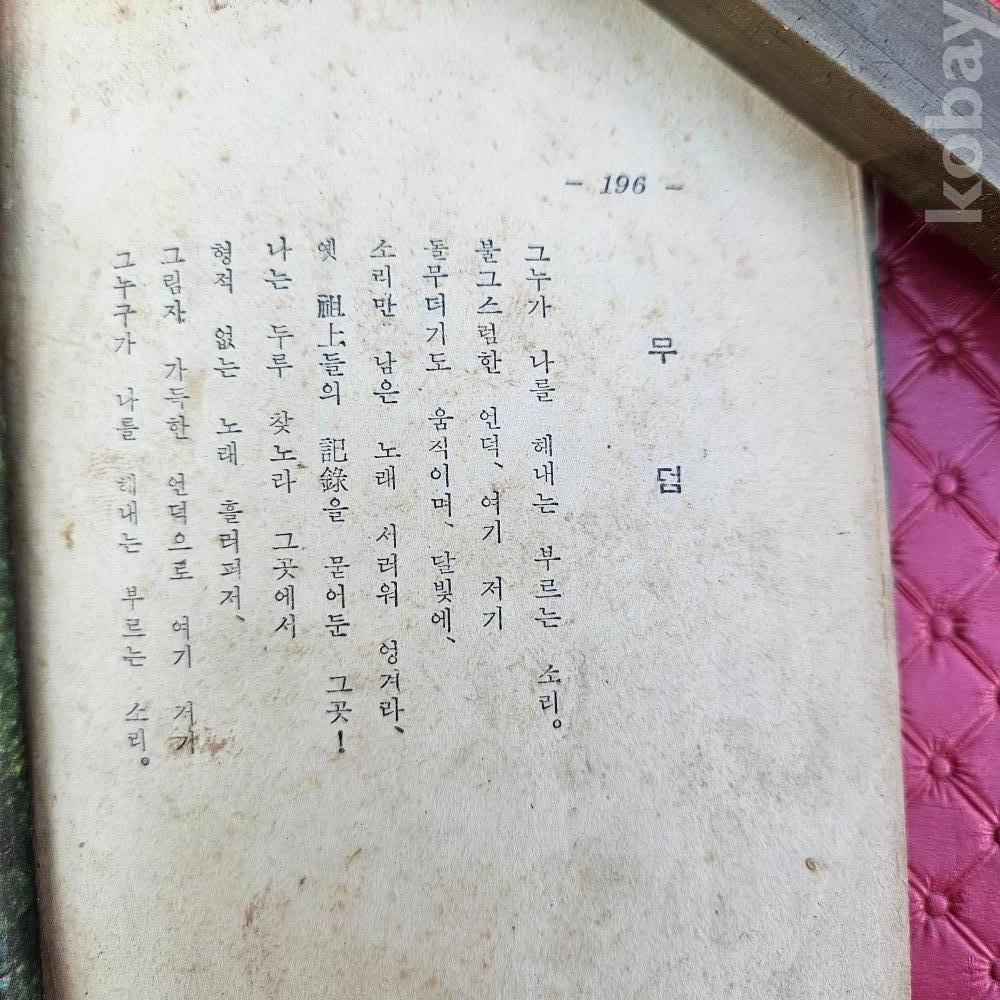 - 196 -
무덤
그누가 나를 헤내는 부르는 소리。
불그스럼한 언덕、여기 저기
돌무더기도 움직이며、달빛에、
소리만 남은 노래 서러워 엉겨라、
옛 祖上들의 記錄을 묻어둔 그곳!
나는 두루 찾노라 그곳에서
형적 없는 노래 흘러퍼저、
그림자 가득한 언덕으로 여기 저기
그누구가 나를 헤내는 부르는 소리。
kobay